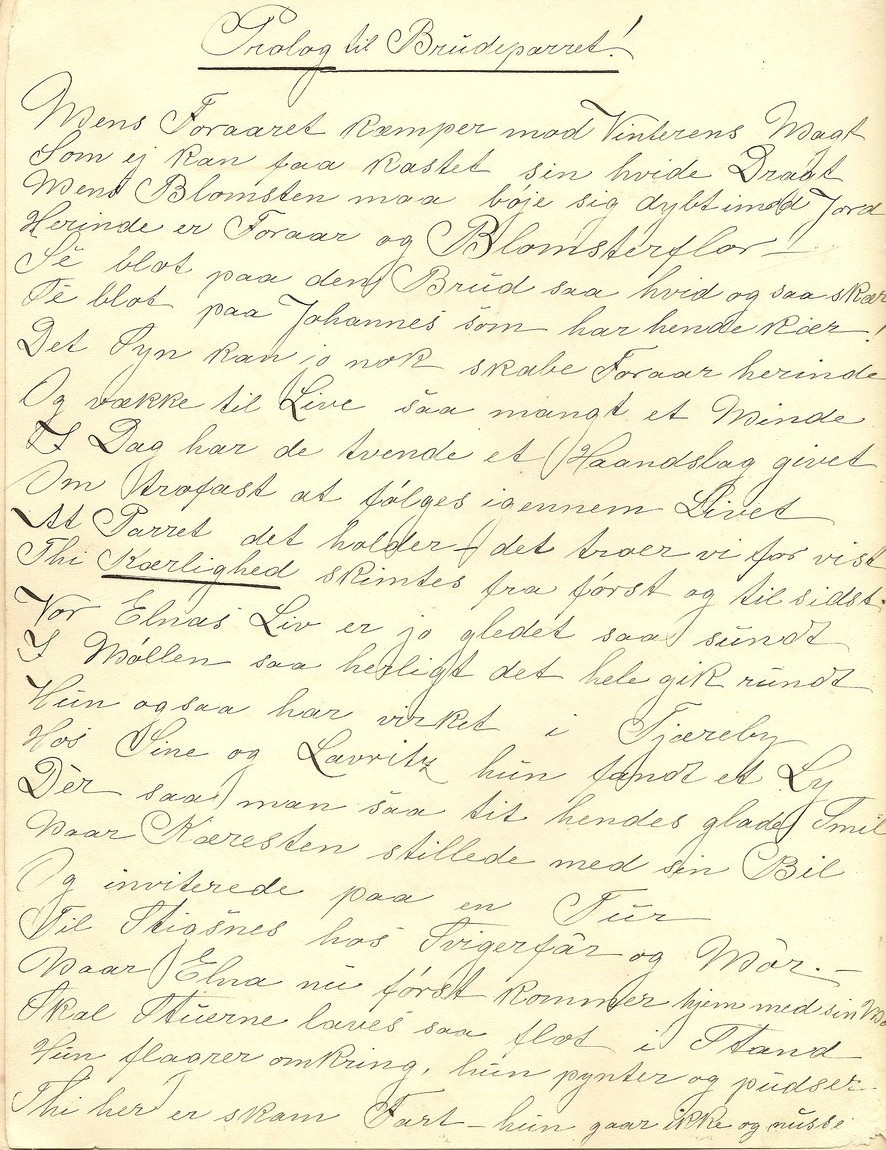 Prolog til Brudeparret!
Mens Foraaret kæmper mod Vinterens Magt
Som ej kan faa kastet sin hvide Dragt
Mens Blomsten maa bøje sig dybt imod Jord
Herinde er Foraar og Blomsterflor —
Se blot paa den Brud saa hvid og saa skær
Se blot paa Johannes som har hende kær!
Det Syn kan jo nok skabe Foraar herinde
Og vække til Live saa mangt et Minde
I Dag har de tvende et Haandslag givet
Om trofast at følges igennem Livet
At Parret det holder – det troer vi for vist
Thi Kærlighed skimtes fra først og til sidst.
Vor Elnas Liv er jo gledet saa sundt
I Møllen saa herligt det hele gik rundt
Hun ogsaa har virket i Tjæreby
Hos Sine og Lavritz hun fandt et Ly
Dèr saa man saa tit hendes glade Smil
Naar Kæresten stillede med sin Bil
Og inviterede paa en Tur
Til Stigsnes hos Svigerfar og Mor. —
Naar Elna nu først kommer hjem med sin
Skal Stuerne laves saa flot i Stand
Hun flagrer omkring, hun pynter og pudser
Thi her er skam Fart – hun gaar ikke og nusse